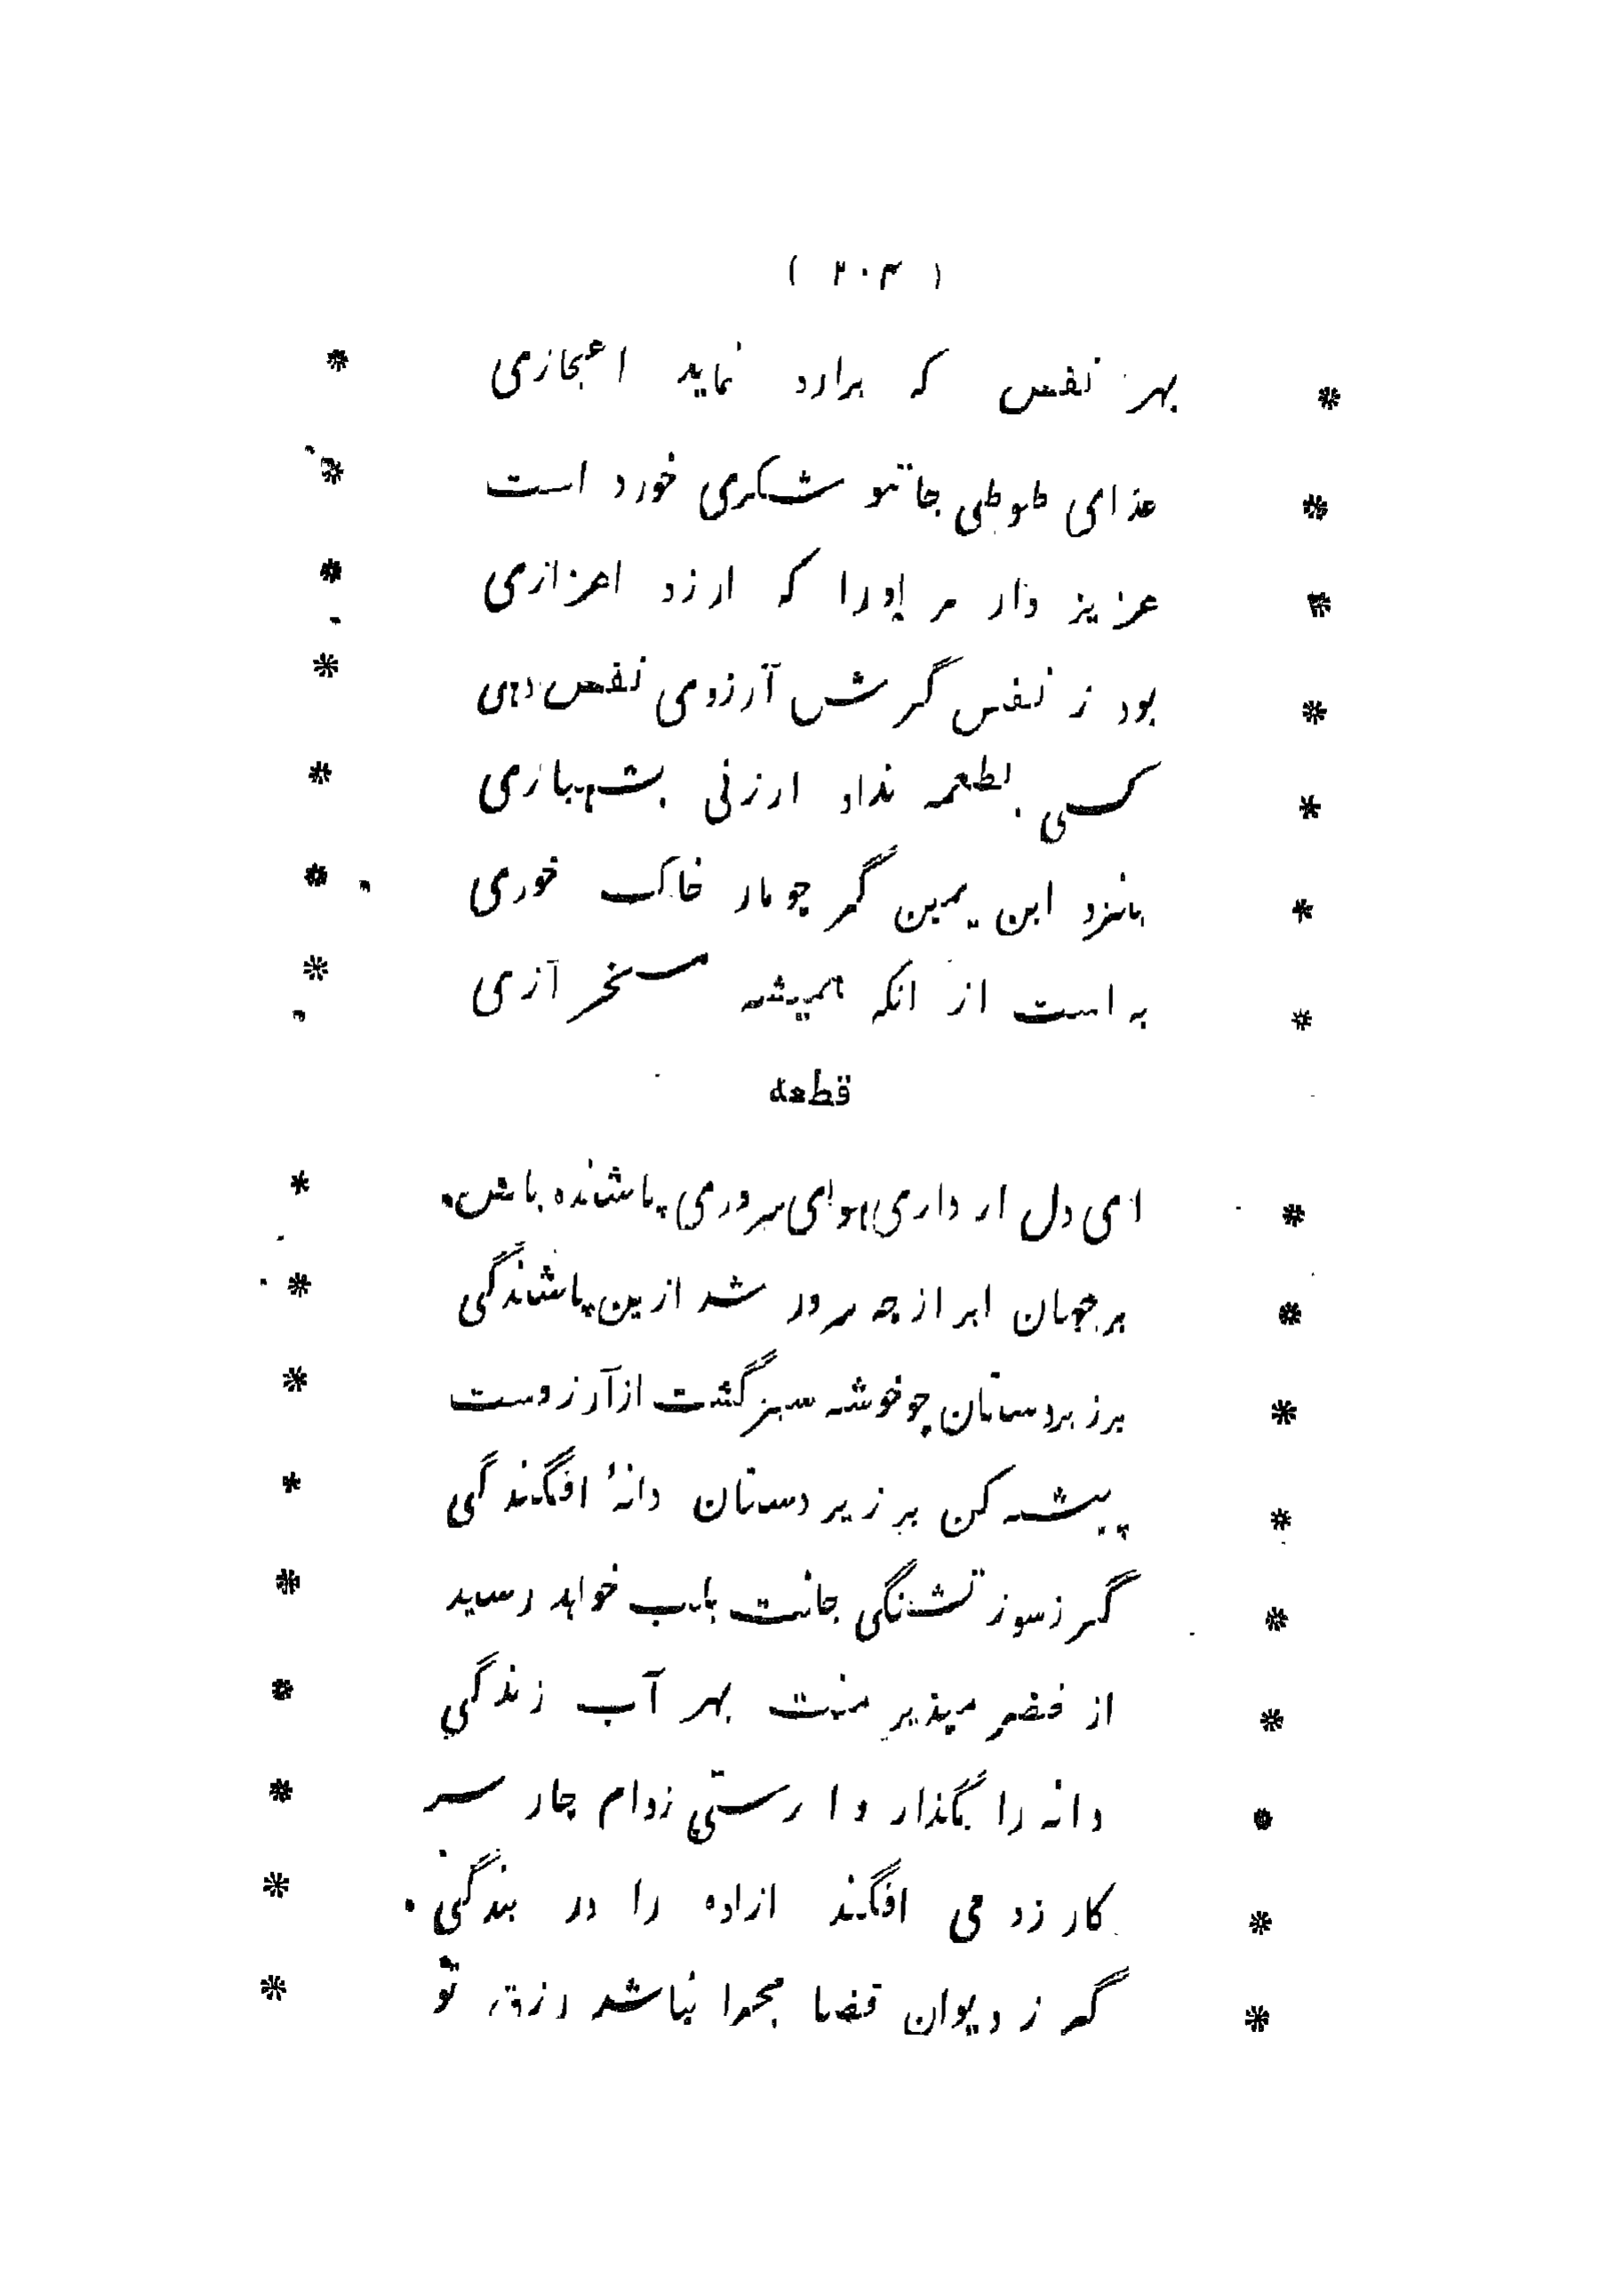 ( ۲۰۳ )
* بهر نفس که برارد نماید اعجازی *
* غذای طوطی جانتو شکری خورد است *
* عزیز دار مر اورا که ارزد اعزازی *
* بود ز نفس گرش آرزوی نفس دهی *
* کسی بطعمه نداد ارزنی بشهبازی *
* بنزد ابن یمین گر چو مار خاک خوری *
* به است از انکه همیشه مسخر آزی *
قطعه
* ای دل ار داری هوای سروری پاشنده باش *
* بر جهان ابر از چه سرور شد ازین پاشندگی *
* برزبردستان چو خوشه سبز گشت از آرزوست *
* پیشه کن بر زیر دستان دانهٔ افگندگی *
* گر ز سوز تشنگی جانت بلب خواهد رسید *
* از خضر مپذیر منت بهر آب زندگی *
* دانه را بگذار و ا رستی ز دام چار سر *
* کار زد می افگند ازاده را در بندگی *
* گر ز دیوان قضا مجرا نباشد رزق تو *